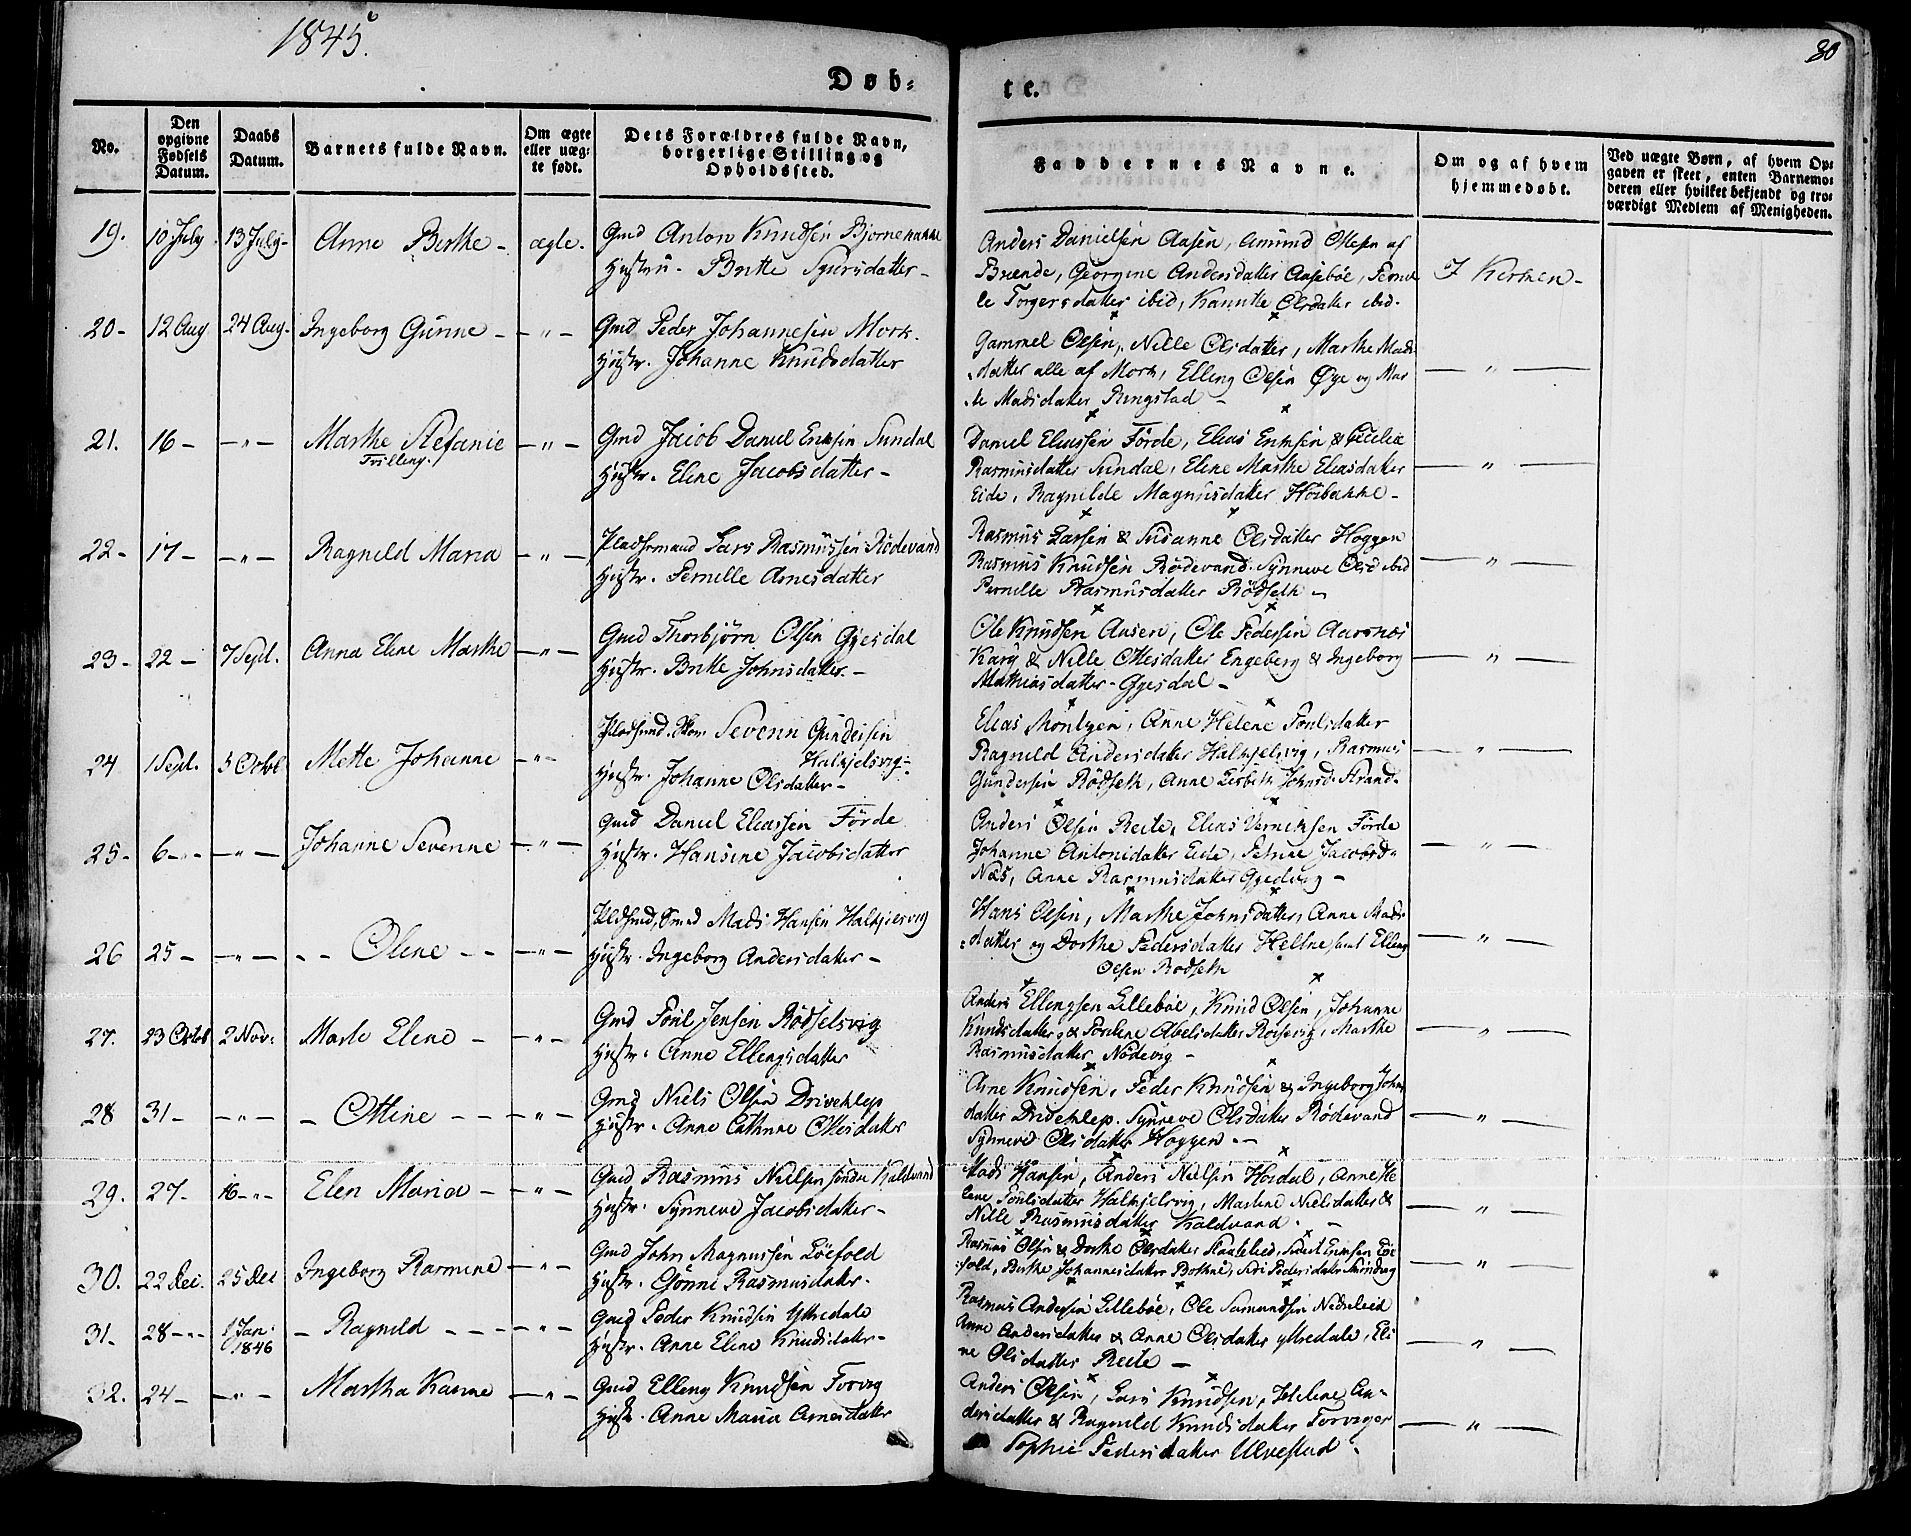 1845.
80
Døb-
te.
No.
Den opgivne Fødsels Datum.
Daabs Datum.
Barnets fulde Navn.
Om ægte eller uægte født.
Dets Forældres fulde Navn, borgerlige Stilling og Opholdssted.
Faddernes Navne.
Om og af hvem hjemmedøbt.
Ved uægte Børn, af hvem Opgaven er skeet, enten Barnemoderen eller hvilket bekjendt og troværdigt Medlem af Menigheden.
19. 10 July 13 July Anne Berthe - ægte. Gmd Anton Knudsen Bjørnebakke
Hustru. Britte Sjursdatter -
Anders Danielsen Aasen, Amund Ottesen af
Brænde, Georgine Andersdatter Aasebøe, Pernil
le Torgersdatter ibid, Kannike Olsdatter ibid.
I Kirken -
20 - 12 Aug 24 Aug. Ingeborg Gunne - - " - Gmd Peder Johannesen Mork.
Hustr. Johanne Knudsdatter
Gammel Olsen, Nille Olsdatter, Marthe Mads
datter alle af Mork, Elling Olsen Øye og Mar
te Madsdatter Ringstad -
- " -
21. 16 - - " - Marthe Stefanie - " -
Trilling.
Gmd Jacob Daniel Eriksen Sundal
Hustr. Eline Jacobsdatter -
Daniel Eliassen Förde, Elias Eriksen & Cecilie
Rasmusdatter Sundal, Eline Marthe Eliasdatter
Eide, Ragnilde Magnusdatter Hoibakke -
- " -
22 - 17 - - " - Ragnild Maria - " - Pladsmand Lars Rasmussen Rödevand
Hustr. Pernille Arnesdatter
Rasmus Larsen & Susanne Olsdatter Hoggen
Rasmus Knudsen Rödevand. Synneve Olsd ibid
Pernille Rasmusdatter Rödseth -
- " -
23 - 22 - 7 Sept. Anna Eline Marthe - " - Gmd Thorbjörn Olsen Gjesdal
Hustr. Britte Johnsdatter. -
Ole Knudsen Aasen, Ole Pedersen Aarsnes
Kary & Nille Ottesdatter Engeberg & Ingeborg
Mathiasdatter - Gjesdal -
- " -
24 1 Sept. 5 Octob Mette Johanne - " - Pladsmd. Severin Gundersen
Halkjelsvig -
Hustr. Johanne Olsdatter -
Elias Anne Helene Poulsdatter
Ragnild Andersdatter Halkjelsvig, Rasmus
Gundersen Rödseth, Anne Lisbeth Johnsd. Strand.
- " -
25 - 6 - " - - " - Johanne Severine - " - Gmd Daniel Eliassen Förde
Hustr. Hansine Jacobsdatter
Anders Olsen Reite, Elias Förde
Johanne Antonidatter Eide, Petrine Jacobsd.
Næs, Anne Rasmusdatter -
- " -
26 25 - - " - - - Oline - - - " - Pladsmd, Smed Mads Hansen Halkjelsvig
Hustr. Ingeborg Andersdatter -
Hans Olsen, Marthe Johnsdatter, Anne Mads
datter og Dorthe Pedersdatter Heltne samt Elling
Olsen Rödseth
- " -
27. 23 Octob 2 Nov: Marte Elene - - " - Gmd Poul Jensen Rödselsvig
Hustr. Anne Ellingsdatter
Anders Ellingsen Lillebøe, Knud Olsen, Johanne
Knudsdatter & Abelsdatter Marthe
Rasmusdatter Nödevig -
- " -
28 31 - - " - - Ottine - - - " - Gmd Niels Olsen Driveklep
Hustr. Anne Cathrine Ottesdatter
Arne Knudsen, Peder Knudsen & Ingeborg Johns
datter Driveklep. Synneve Olsdatter Rödevand
Synneve Olsdatter Hoggen. -
- " -
29. 27 - 16 - " - Elen Maria - - " - Gmd Rasmus Nielsen Söndre Kaldvand
Hustr. Synneve Jacobsdatter -
Mads Hansen, Anders Nielsen Hovdal, Anne He
lene Poulsdatter Halkjelsvig, Marlene Nielsdatter &
Nille Rasmusdatter Kaldvand. -
- " -
30. 22 Dec. 25 Dec Ingeborg Rasmine - " - Gmd John Magnussen Löefold
Hustr. Gönne Rasmusdatter.
Rasmus Olsen & Dorthe Olsdatter Eriksen Löe
fold, Berthe Johannesdatter Siri Pedersdatter
- " -
31 - 28 - " - 1 Jan. 1846 - Ragnild - - - - " - Gmd Peder Knudsen Yttredale
Hustr. Anne Eline Knudsdatter -
Rasmus Andersen Lillebøe, Ole Samundsen Nedreleid
Anne Andersdatter & Anne Olsdatter Yttredale, Eli
ne Olsdatter Reite -
- " -
32. 24 - - " - Martha Karine - " - Gmd Elling Knudsen Torvig
Hustr. Anne Maria Arnesdatter
Anders Olsen, Lars Knudsen, Helene An-
dersdatter & Ragnild Knudsdatter Torviger
Sophie Pedersdatter Ulvestad.
- " -